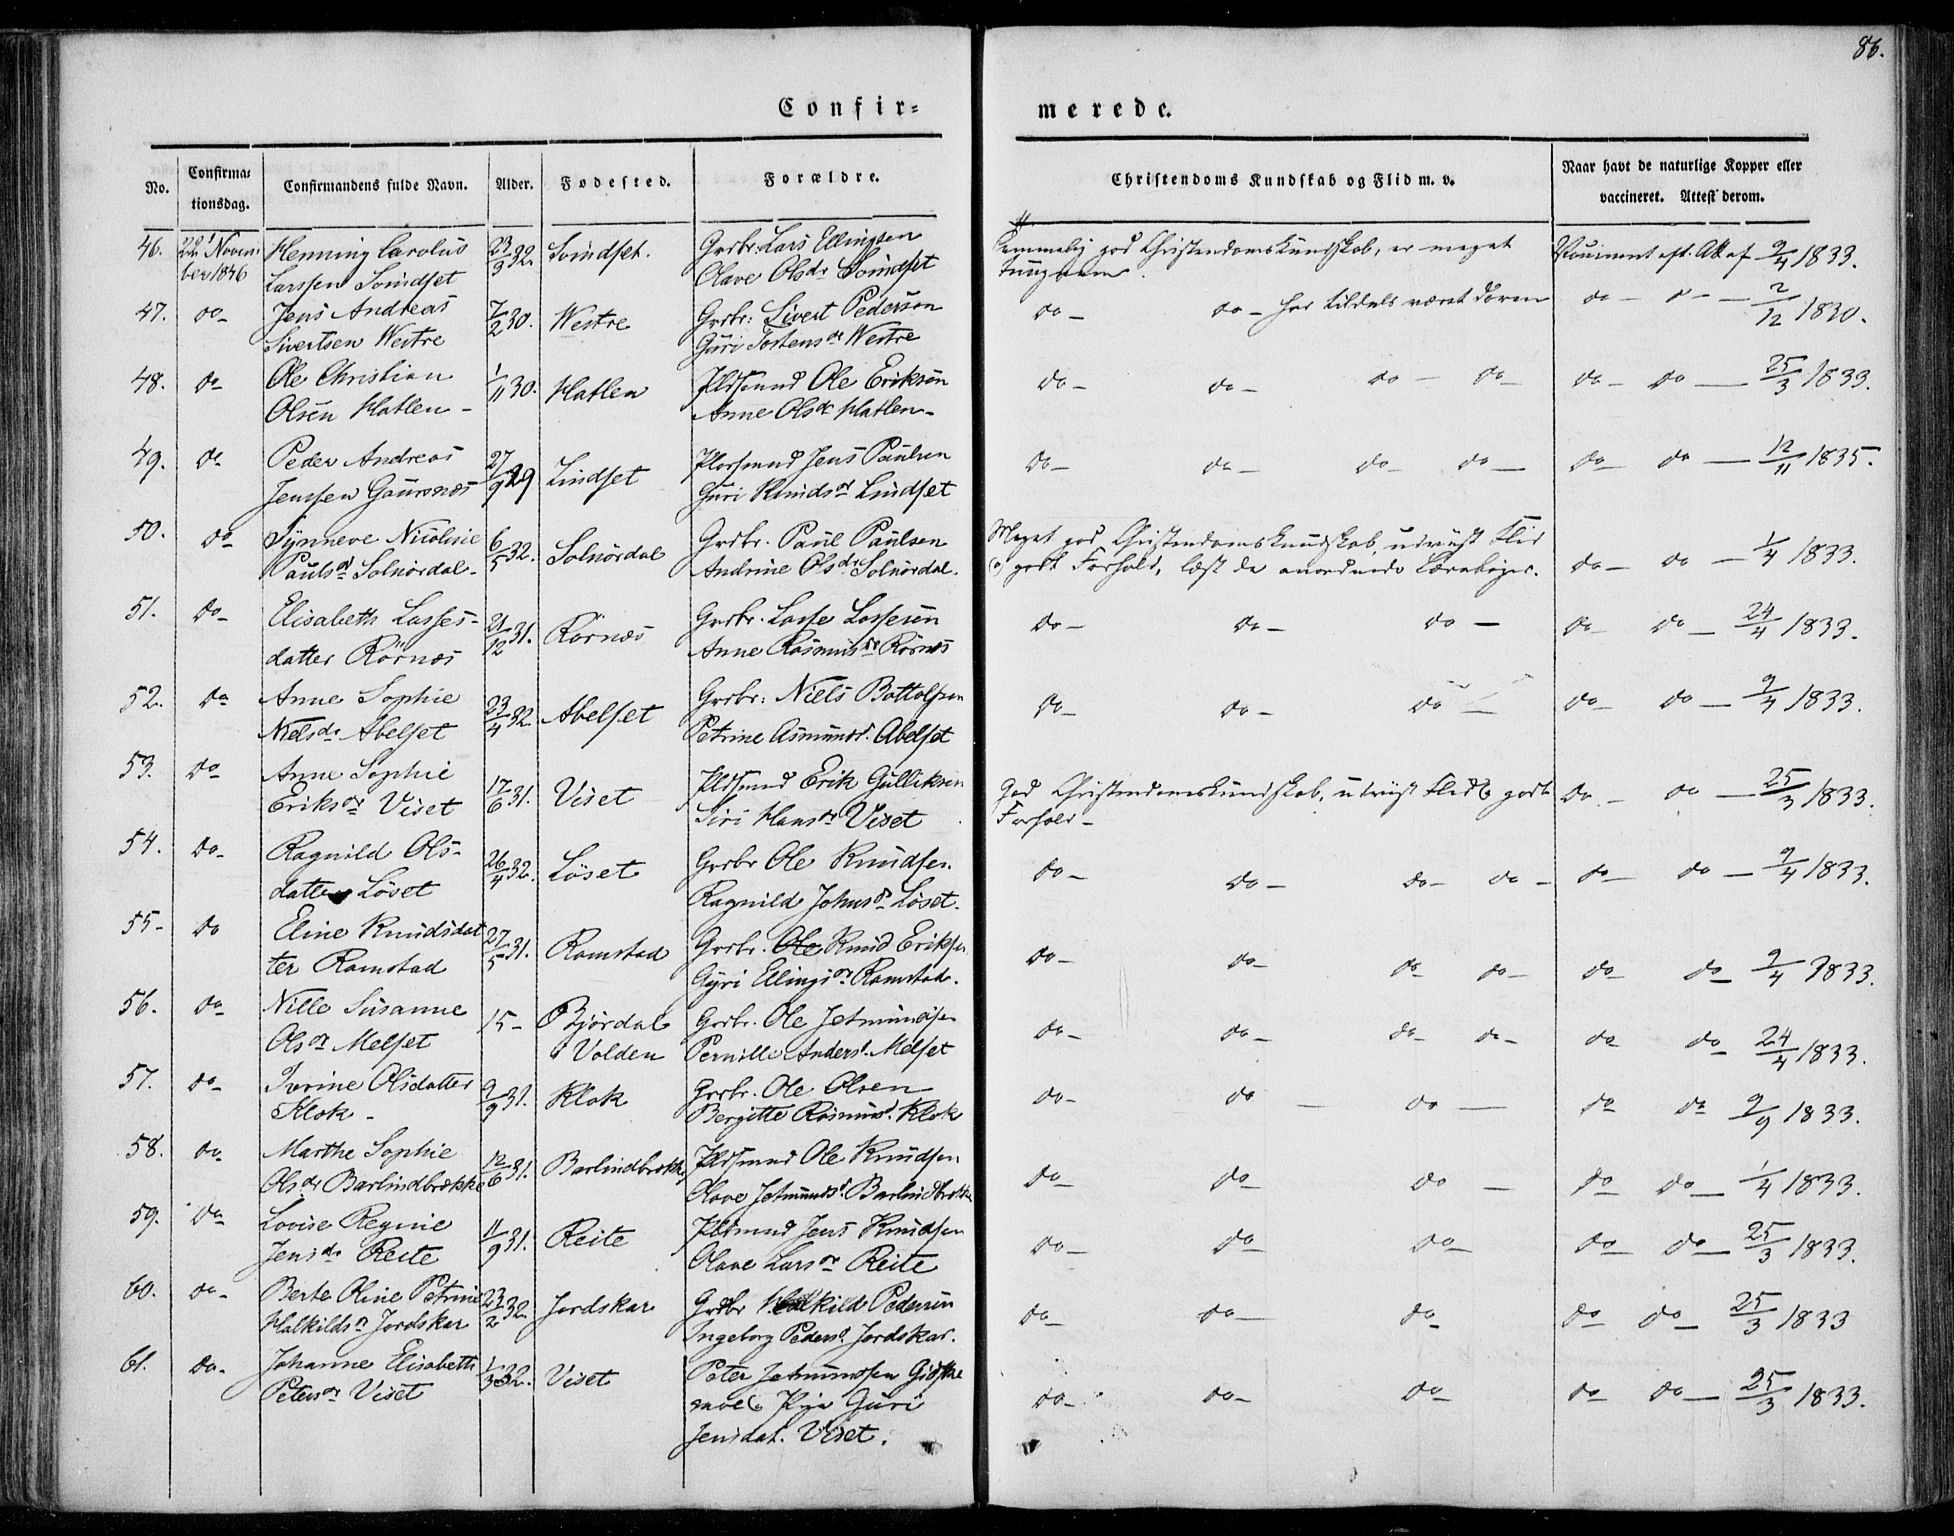 86.
Confir=
merede.
No.
Confirma=
tionsdag.
Confirmandens fulde Navn.
Alder.
Fødested.
Forældre.
Christendoms Kundskab og Flid m. v.
Naar havt de naturlige Kopper eller
vaccineret. Attest derom.
46. 22 Novem
ber 1846
Henning Carolus
Larssen Svindset
23/3 32.
Svindset.
Grdbr. Lars Ellingsen
Olave Olsdr Svindset
Temmelig god Christendomskundskab, er meget
tungnem.
Vaccineret eft. Att. af 9/4 1833.
47. do-
Jens Andreas
Sivertsen Westre
7/2 30.
Westre
Grdbr: Sivert Pedersen
Guri Tostensdr Westre
do- do- har tildels været doven
do- d- - 2/12 1830.
48. do
Ole Christian
Olsen Hatlen-
1/11 30.
Hatlen
Pldsmand Ole Eriksen
Anne Olsdr Hatlen-
do- do- do- do-
do- do- 25/3 1833.
49. do
Peder Andreas
Jenssen
27/9 29
Lindset
Pladsmnd Jens Paulsen
Guri Knudsdr Lindset
do- do- do- do-
do- do- 12/11 1835.
50. do
Synneve Nicoline
Paulsdr Solnørdal-
6/5 32.
Solnørdal
Grdbr. Paul Paulsen
Andrine Olsdr Solnørdal.
Meget god Christendomskundskab, udviist Flid
og godt Forhold, læst de anordnede Lærebøger.
do- do- 1/4 1833.
51. do-
Elisabeth Lasses-
datter Rörnæs
21/12 31.
Rörnæs
Grdbr. Lasse Lassesen
Anne Rasmusdr Rörnæs
do- do- do-
do- do- 24/4 1833.
52. do
Anne Sophie
Nielsdr Abelset
23/4 32.
Abelset
Grdbr: Niels Bottolfsen
Petrine Asmundsd. Abelset
do- do- do-
do- do- 9/4 1833.
53. do
Anne Sophie
Eriksdr Viset
17/6 31.
Viset
Pldsmnd Erik Gulliksen
Siri Hansdr Viset
God Christendomskundskab, udviist Flid og godt
Forhold-
do- do- 25/3 1833.
54. do-
Ragnild Ols-
datter Löset
26/4 32.
Löset
Grdbr Ole Knudsen.
Ragnild Johnsd. Löset.
do- do- do- do-
do- do- 9/4 1833.
55- do
Eline Knudsdat
ter Ramstad
27/5 31.
Ramstad
Grdbr. Ole Knud Eriksen
Gyri Ellingsdr Ramstad.
do- do- do- do-
do- do- 9/4 1833.
56. do-
Nille Susanne
Olsdr Melset
15-
Björdal
i Volden
Grdbr. Ole Jetmundsen
Pernille Andersd. Melset
do- do- do- do-
do- do- 24/4 1833.
57. do-
Iverine Olsdatter
Klok-
9/9 31.
Klok
Grdbr. Ole Olsen
Bergitte Rasmusd. Klok
do- do- do-
do do 9/9 1833.
58. do-
Marthe Sophie
Olsdr Barlindbrække
12/6 31.
Barlindbrække
Pldsmnd Ole Knudsen
Olave Jetmundsd. Barlindbrække
do- do- do-
do do- 1/4 1833.
59. do
Lovise Regine
Jensdr Reite
11/9 31.
Reite
Pldsmnd Jens Knudsen
Olave Larsdr Reite
do- do- do-
do- do- 25/3 1833.
60. do-
Berte Oline Petrine
Halkildsdr Jordskar
23/2 32.
Jordskar
Grdbr Halkild Pedersen
Ingeborg Pedersd. Jordskar.
do- do- do-
do- do- 25/3 1833
61. do-
Johanne Elisabeth
Petersdr Viset
1/3 32.
Viset
Peter Jetmundsen Gidske
og Pige Guri
Jensdat. Viset.
do- do- do-
do do- 25/3 1833.